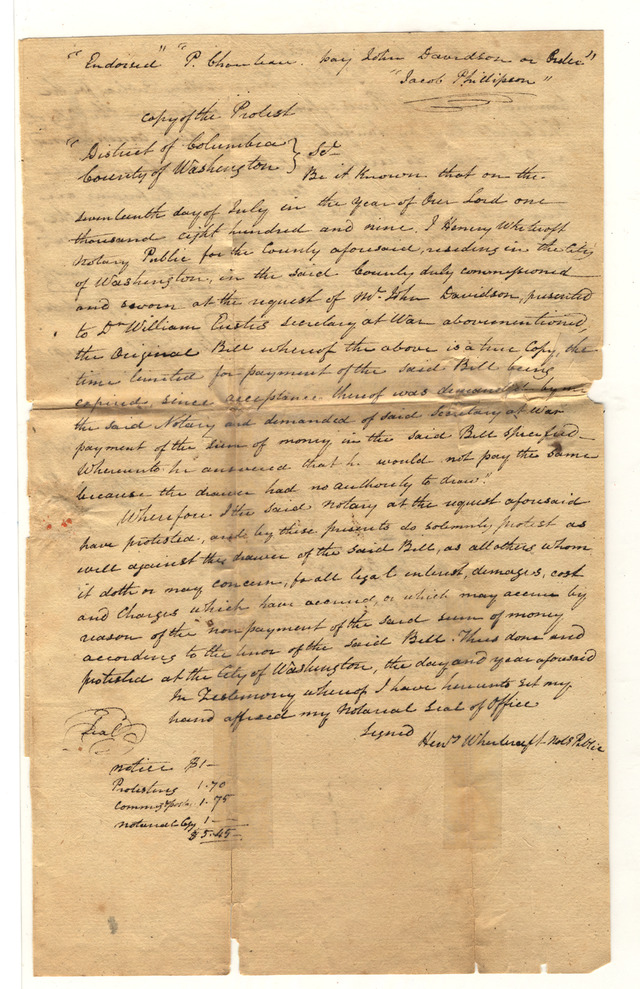 "Endorsed" "P. Chouteau. pay John Davidson or Order"
"Jacob Phillipson"
Copy of the Protest
"District of Columbia
County of Washington } Sct
Be it Known that on the
seventeenth day of July in the Year of Our Lord one
thousand eight hundred and nine, I Henry Whetcroft
Notary Public for the County aforesaid, residing in the City
of Washington, in the said County duly commissioned
and sworn at the request of Mr John Davidson, presented
to Dr William Eustis Secretary at War abovementioned,
the Original Bill whereof the above is a true Copy, the
time limited for payment of the said Bill being
expired since acceptance thereof was demanded by me
the said Notary and demanded of said Secretary at War
payment of the sum of money in the said Bill specified
Whereunto he answered that he would not pay the same
because the drawer had no authority to draw."
Wherefore I the said Notary at the request aforesaid
have protested, and by these presents do solemnly protest as
well against the drawer of the said Bill, as all others whom
it doth or may concern, for all legal interest, damages, cost
and Charges which have accrued, or which may accrue by
reason of the non payment of the said sum of money
according to the tenor of the said Bill. Thus done and
protested at the City of Washington, the day and year aforesaid
In Testimony whereof I have hereunto set my
hand affixed my Notarial Seal of Office
Seal
Signed
Heny Whetcroft Noty Public
notice $1—
Protesting 1.70
1.75
Notarial Copy 1—
$5.45—